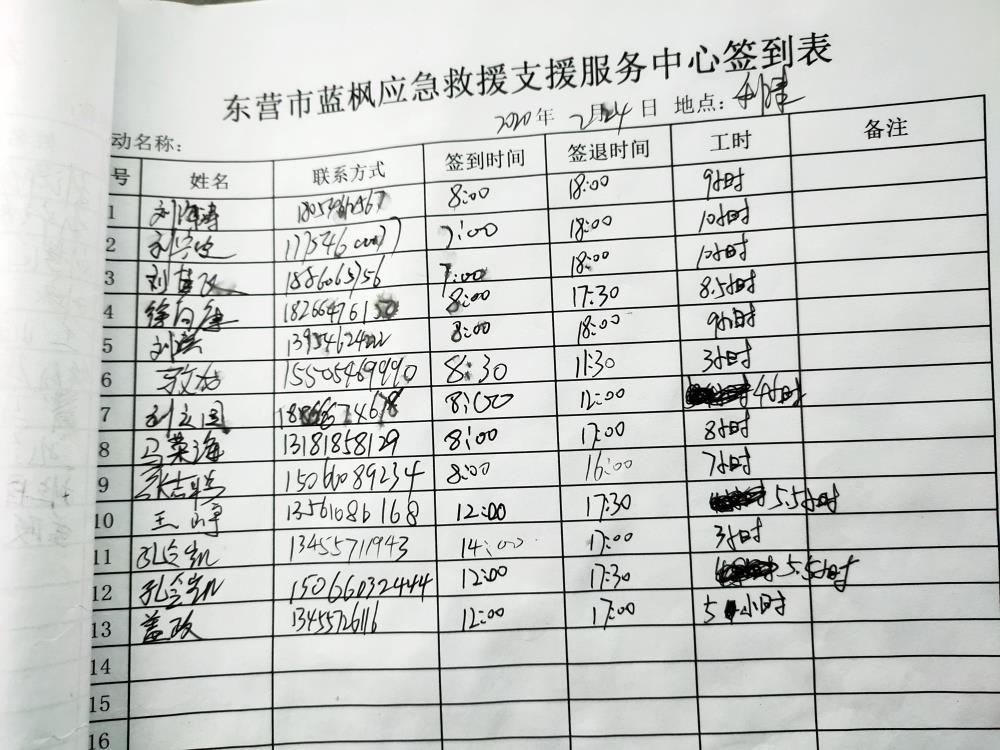 东营市蓝枫应急救援支援服务中心签到表
动名称： 2020年 2月24日 地点：利津
号 姓名 联系方式 签到时间 签退时间 工时 备注
1 刘海涛 8:00 18:00 9小时
2 7:00 18:00 10小时
3 7:00 18:00 10小时
4 8:00 17:30 8.5小时
5 8:00 18:00 9小时
6 15505469990 8:30 11:30 3小时
7 刘立国 8:00 12:00 4小时
8 马荣海 13181858129 8:00 17:00 8小时
9 15066089234 8:00 16:00 7小时
10 王 13561086168 12:00 17:30 5.5小时
11 13455711943 14:00 17:00 3小时
12 15066032444 12:00 17:30 5.5小时
13 盖政 13455726116 12:00 17:00 5小时
14
15
16